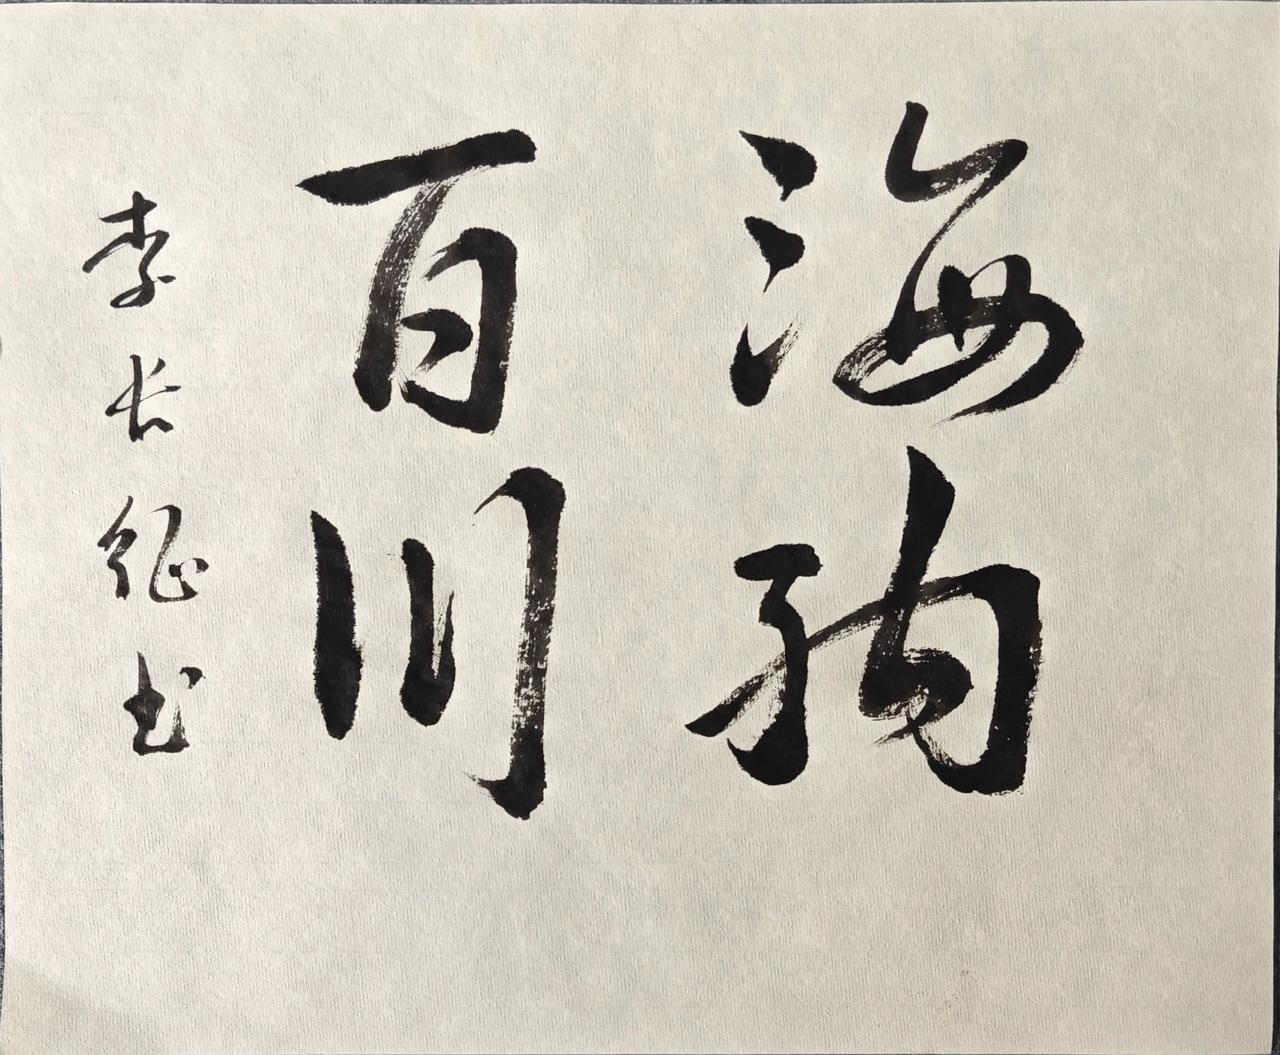 海纳
百川
李长征书